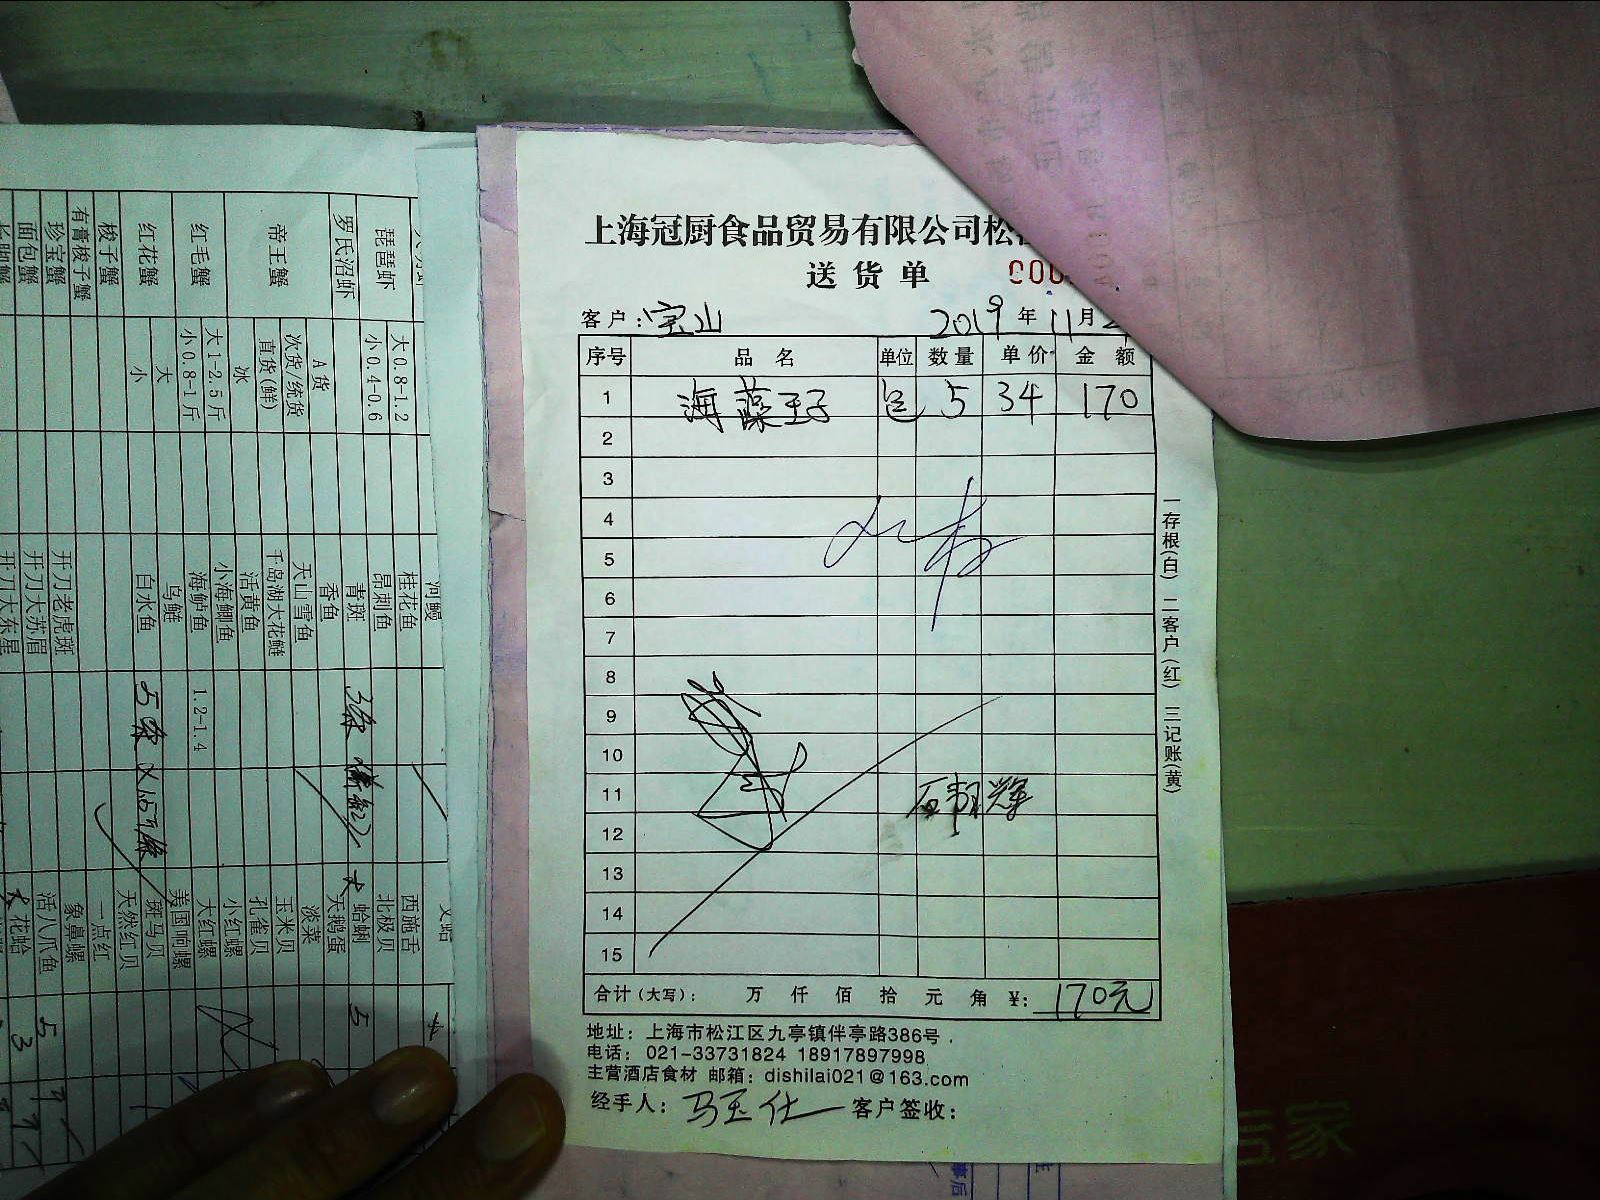 上海冠厨食品贸易有限公司松
送货单
客户：宝山 2019年11月
序号 品名 单位 数量 单价 金额
1 海藻王子 包 5 34 170
2
3
4
5
6
7
8
9
10
11
12
13
14
15
合计（大写）： 万 仟 佰 拾 元 角 ¥：170元
地址：上海市松江区九亭镇伴亭路386号
电话：021-33731824 18917897998
主营酒店食材 邮箱：dishilai021@163.com
经手人：马玉仕 客户签收：
一存根(白) 二客户(红) 三记账(黄)
琵琶虾 大0.8-1.2 小0.4-0.6
罗氏沼虾
帝王蟹 A货 次货/统货 直货(鲜) 冰
红毛蟹 大1-2.5斤 小0.8-1斤
红花蟹 大 小
梭子蟹
有膏梭子蟹
珍宝蟹
面包蟹
河鳗
桂花鱼
昂刺鱼
青斑
香鱼
天山雪鱼
千岛湖大花鲢
活黄鱼
小海鲫鱼
海鲈鱼 1.2-1.4
乌鲢
白水鱼
开刀老虎斑
开刀大苏眉
开刀大东星
文蛤
西施舌
北极贝
蛤蜊 5
天鹅蛋
淡菜
玉米贝
孔雀贝
小红螺
大红螺
美国响螺
斑马贝
天然红贝
一点红
象鼻螺
活八爪鱼 5
花蛤 3